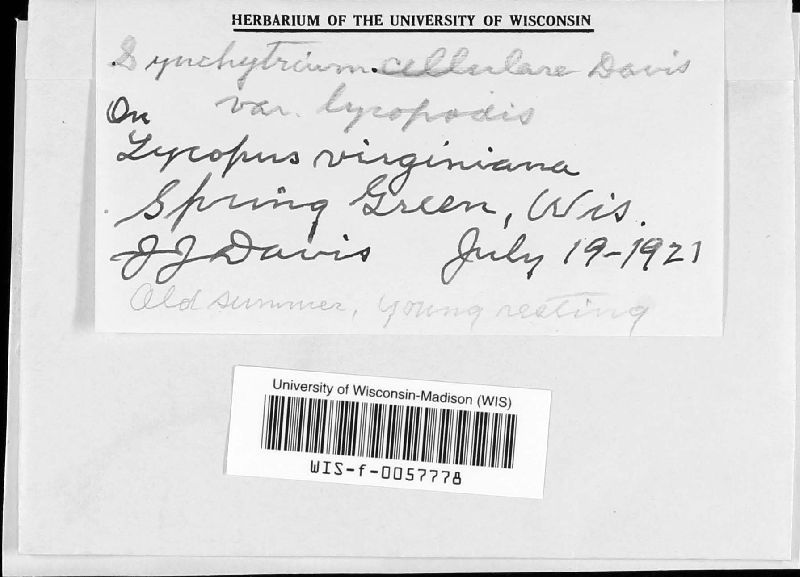 HERBARIUM OF THE UNIVERSITY OF WISCONSIN
Synchytrium cellulare Davis
var. lycopodis
On
Lycopus virginiana
Spring Green, Wis.
JJ Davis July 19-1921
Old summer, young resting
University of Wisconsin-Madison (WIS)
WIS-f-0057778